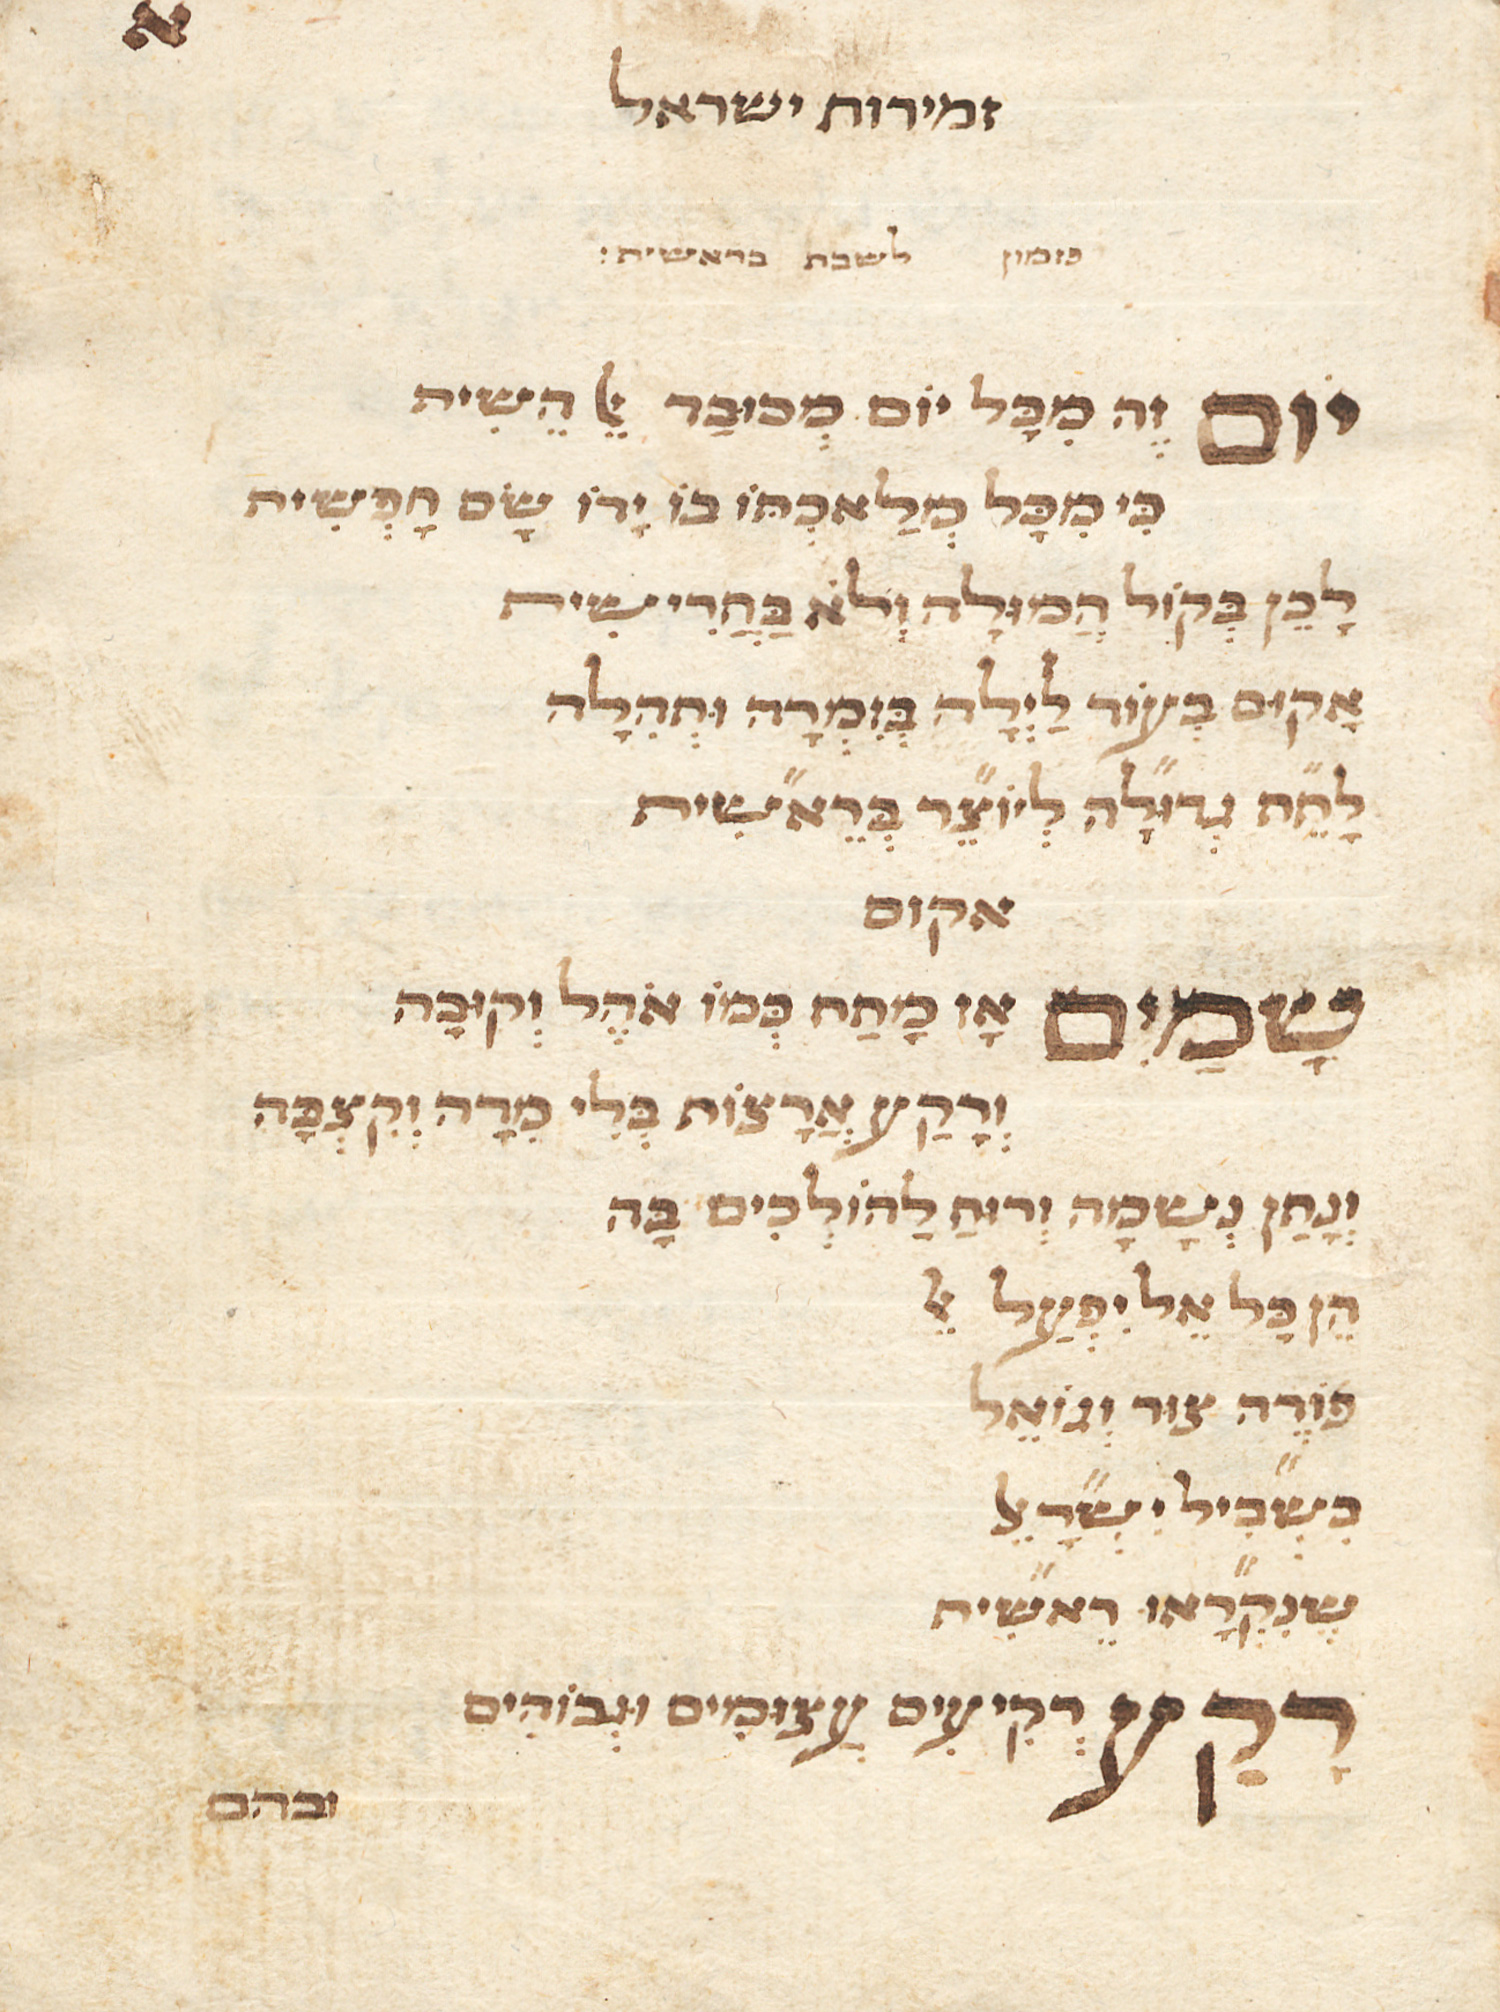 א
זמירות ישראל
פזמון לשבת בראשית:
יוֹם זֶה מִכָּל יוֹם מְכוּבַּד אֵל הֱשִׁית
כִּי מִכָּל מְלַאכְתּוֹ בוֹ יָדוֹ שָׂם חָפְשִׁית
לָכֵן בְּקוֹל הֲמוּלָה וְלֹא בַּחֲרִישִׁית
אָקוּם בְּעוֹד לַיְלָה בְּזִמְרָה וּתְהִלָה
לָתֵ״ת גְדוּ״לָה לְיוֹ״צֵר בְּרֵא״שִׁית
אקום
שָׁמַיִם אָז מָתַח כְּמוֹ אֹהֶל וְקוּבָּה
וְרָקַע אֲרָצוֹת בְּלִי מִדָה וְקִצְבָּה
וְנָתַן נְשָׁמָה וְרוּחַ לַהוֹלְכִים בָּהּ
הֵן כָּל אֵל יִפְעַל אֵל
פּוֹדֶה צוּר וְגוֹאֵל
בִּשְׁ״בִיל יִשְׂ״רָאֵל
שֶׁנִקְ״רָאוּ רֵא״שִׁית
רָקַע רְקִיעִים עֲצוּמִים וּגְבוֹהִים
ובהם